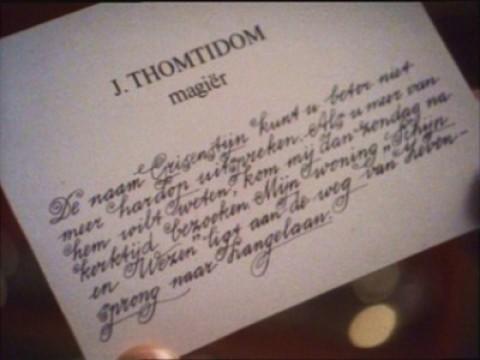 J. THOMTIDOM
magiër
De naam Crisenstijn kunt u beter niet
meer hardop uitspreken. Als u meer van
hem wilt weten, kom mij dan zondag na
kerktijd bezoeken. Mijn woning "Schijn
en Wezen" ligt aan de weg van Zeven-
sprong naar Langelaan.